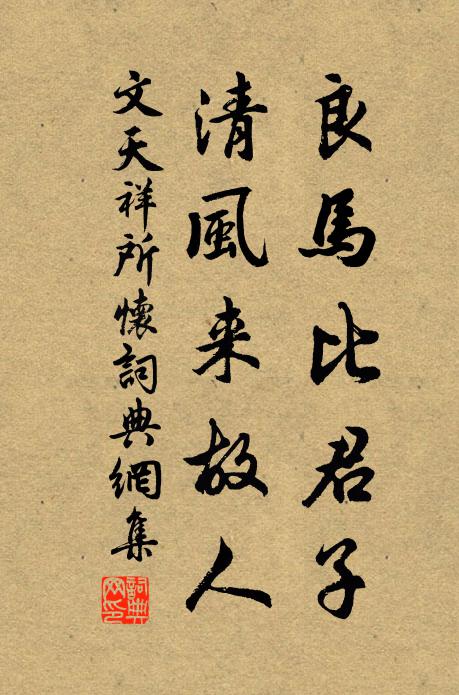 良馬比君子
清風来故人
文天祥所懷詞典網集
詞典网印